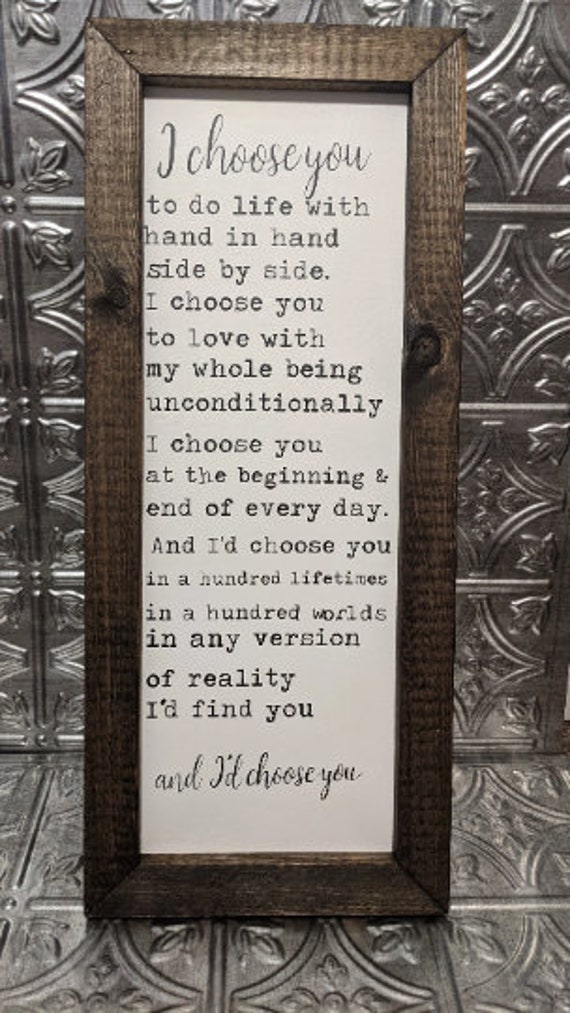 I choose you
to do life with
hand in hand
side by side.
I choose you
to love with
my whole being
unconditionally
I choose you
at the beginning &
end of every day.
And I'd choose you
in a hundred lifetimes
in a hundred worlds
in any version
of reality
I'd find you
and I'd choose you